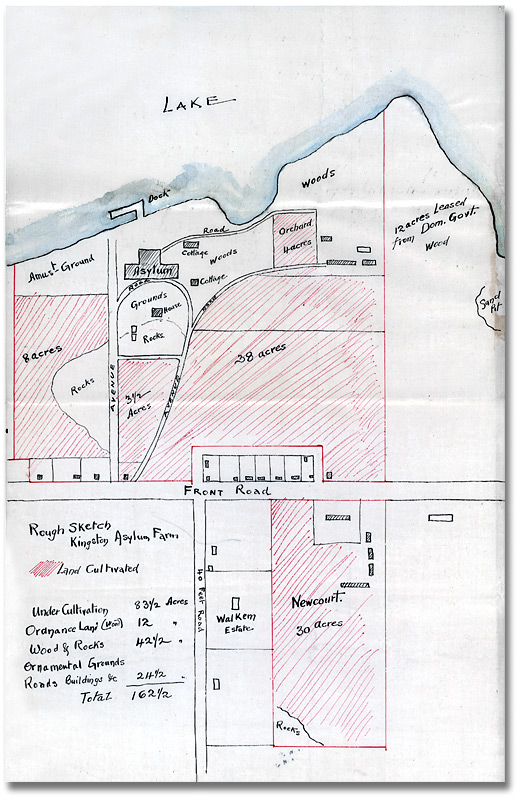 LAKE
Dock
Woods
Road
Orchard
4 acres
12 acres Leased
from Dom. Govt.
Wood
Sand
Pit
Amust Ground
Asylum
Cottage
Woods
Cottage
Road
Grounds
House
Rocks
8 acres
Rocks
AVENUE
3 1/2
Acres
AVENUE
38 acres
FRONT ROAD
Rough Sketch
Kingston Asylum Farm
Land Cultivated
Under Cultivation 83 1/2 Acres
Ordnance Land (Wood) 12 "
Wood & Rocks 42 1/2 "
Ornamental Grounds
Roads Buildings &c 24 1/2 "
Total 162 1/2
40 Feet Road
Walkem
Estate
Newcourt
30 acres
Rocks